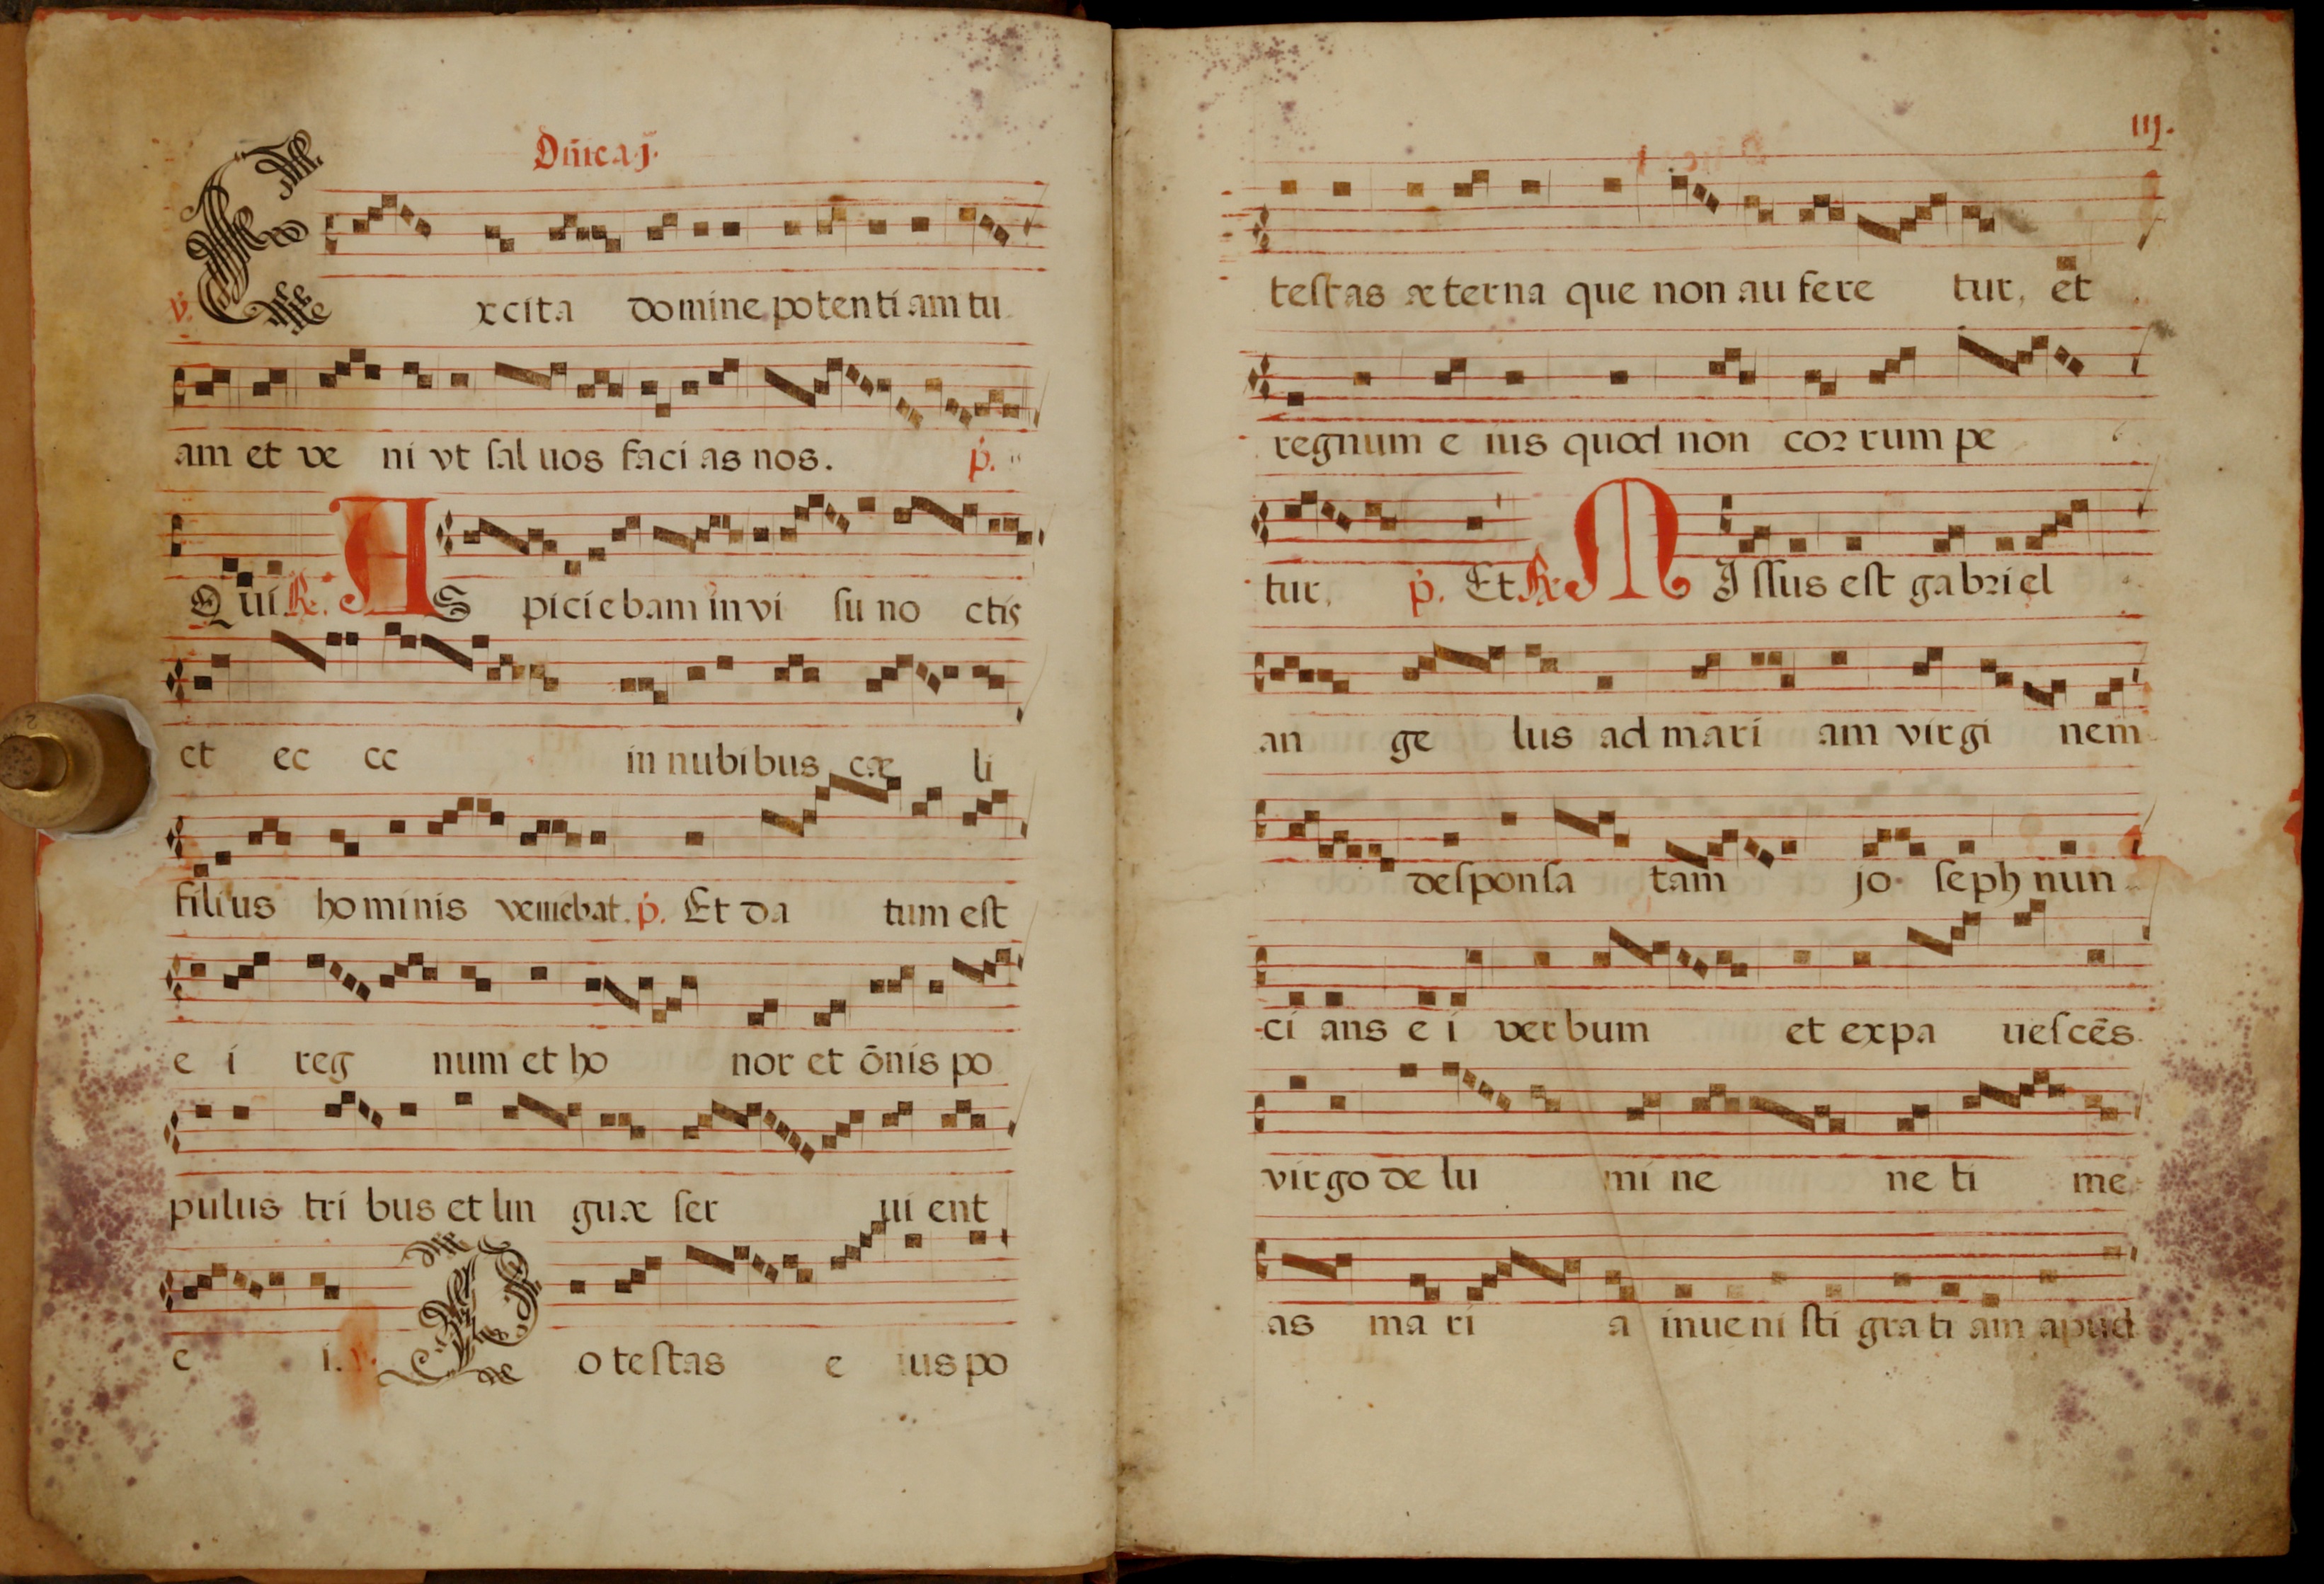 Dñica j.
℣. Excita domine potentiam tu
am et ve ni vt ſal uos faci as nos. p.
Qui ℟. AS piciebam in vi ſu no ctis
et ec ce in nubibus cæ li
filius hominis veniebat. p. Et da tum eſt
e i reg num et ho nor et õnis po
pulus tri bus et lin guæ ſer ui ent
e i. ℣. Poteſtas e ius po
iij.
teſtas æterna que non au fere tur, et
regnum e ius quod non cor rum pe
tur, p. Et ℟. MIſſus eſt gabriel
an ge lus ad mari am virgi nem
deſponſa tam jo ſeph nun
ci ans e i verbum et expa ueſcẽs
virgo de lu mi ne ne ti me
as ma ri a inueni ſti gra ti am apud